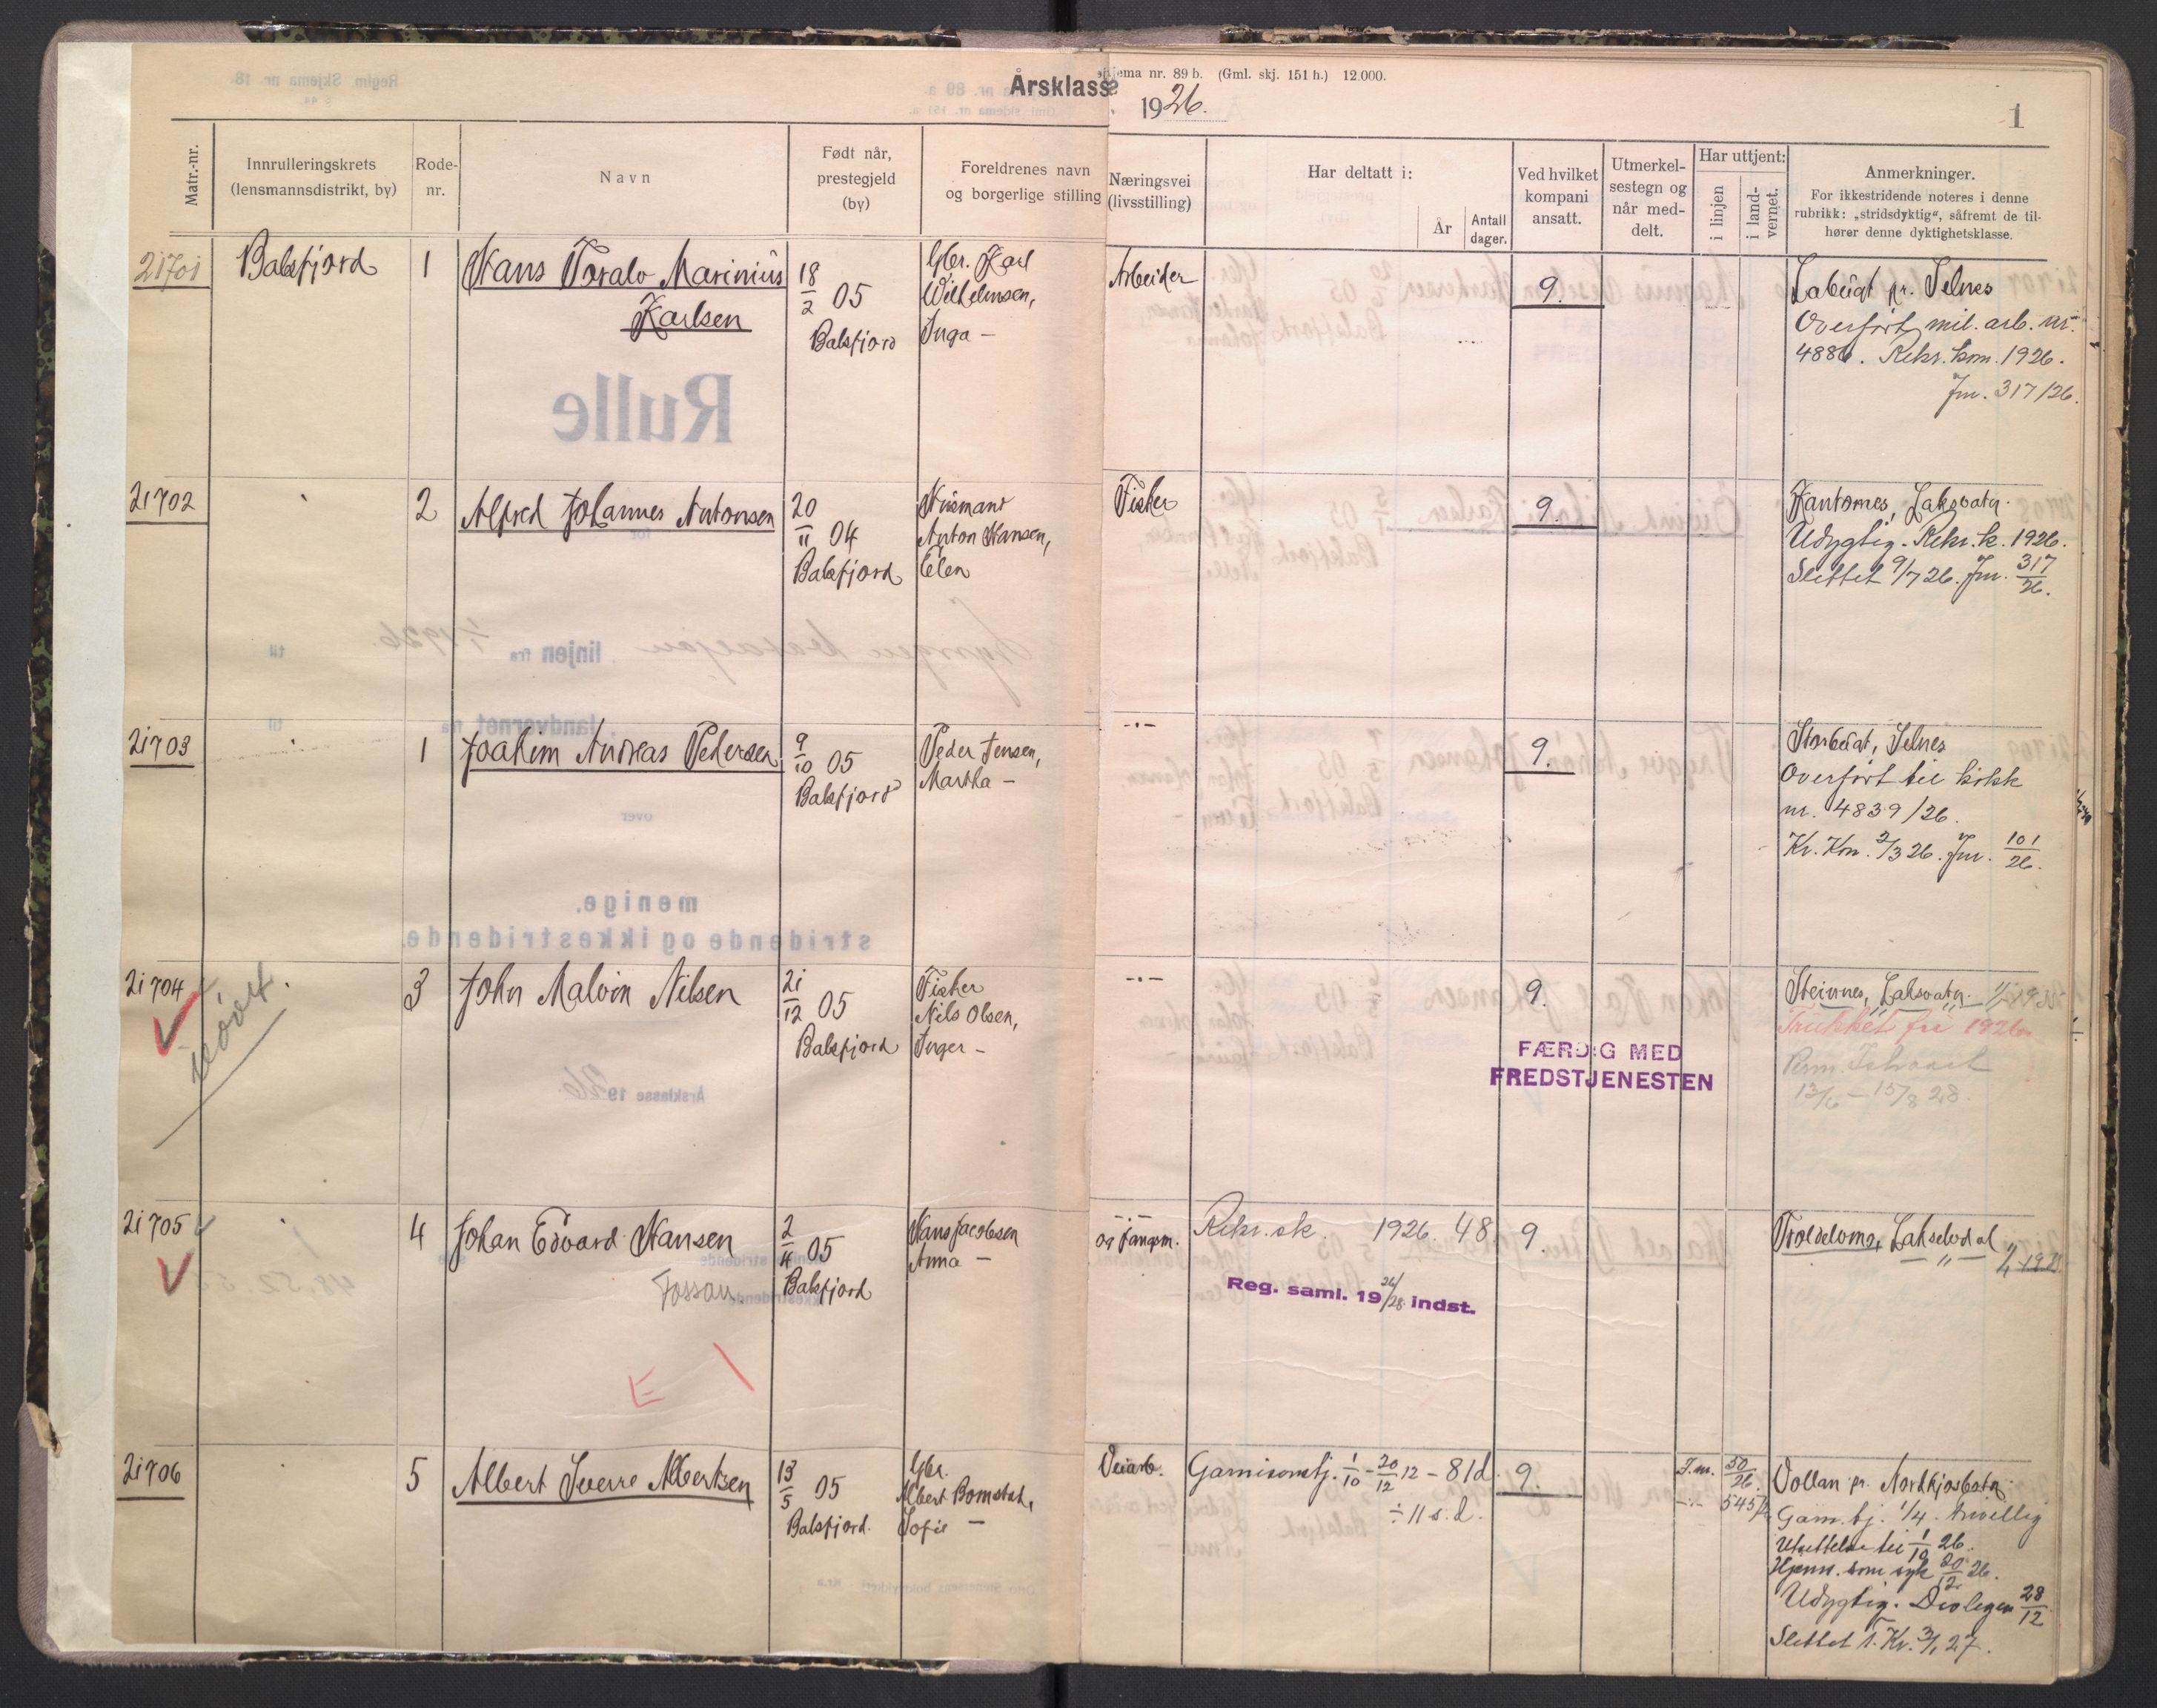 Årsklasse
Skjema nr. 89 b. (Gml. skj. 151 h.) 12.000.
1926.
1
Matr.-nr.
Innrulleringskrets
(lensmannsdistrikt, by)
Rode-
nr.
Navn
Født når,
prestegjeld
(by)
Foreldrenes navn
og borgerlige stilling
Næringsvei
(livsstilling)
Har deltatt i:
År
Antall
dager.
Ved hvilket
kompani
ansatt.
Utmerkel-
sestegn og
når med-
delt.
Har uttjent:
i linjen
i land-
vernet.
Anmerkninger.
For ikkestridende noteres i denne
rubrikk: „stridsdyktig“, såfremt de til-
hører denne dyktighetsklasse.
21701
Balsfjord
1
Hans Toralv Marinius
Karlsen
18/2 05
Balsfjord
Gbr. Karl
Wilhelmsen,
Inga —
Arbeider
9.
Labugt pr. Selnes
Overført mil. arb. nr.
4886. Rekr. kom. 1926.
Jnr. 317/26.
21702
2
Alfred Johannes Antonsen
20/11 04
Balsfjord
Husmann
Anton Hansen,
Elen
Fisker
9.
Kantornes, Laksvatn.
Udygtig. Rekr. k. 1926.
Slettet 9/7 26. Jnr. 317/26.
21703
1
Joakim Andreas Pedersen
9/10 05
Balsfjord
Peder Jensen,
Martha —
—·—
9.
Storbugt, Selnes
Overført til kokk
nr. 4839/26.
Kr. Km. 2/3 26. Jnr. 101/26.
21704
3
John Malvin Nilsen
21/12 05
Balsfjord
Fisker
Nils Olsen,
Inger —
—·—
9.
FÆRDIG MED
FREDSTJENESTEN
Steinnes, Laksvatn.
Trukket fri 1926
13/6 — 15/8 28.
21705
4
Johan Edvard Hansen
Fossan.
2/11 05
Balsfjord
Hans Jacobsen
Anna —
—·—
og fangsm.
Rekr. sk. 1926. 48
Reg. saml. 19 26/28 indst.
9.
E
21706
5
Albert Sverre Albertsen
13/5 05
Balsfjord.
Gbr.
Albert Bomstad,
Sofie —
Veiarb.
Garnisonstj. 1/10 - 20/12 12 - 81 d.
÷ 11 s. d.
9.
J.nr. 50/26.
Vollan pr. Nordkjosbotn.
Garn. tj. 1/4. frivillig
Utsettelse til 1/10 26.
Hjems. som syk 20/12 26.
Udygtig. Div legen 28/12
Slettet T. Kr. 3/1 27.